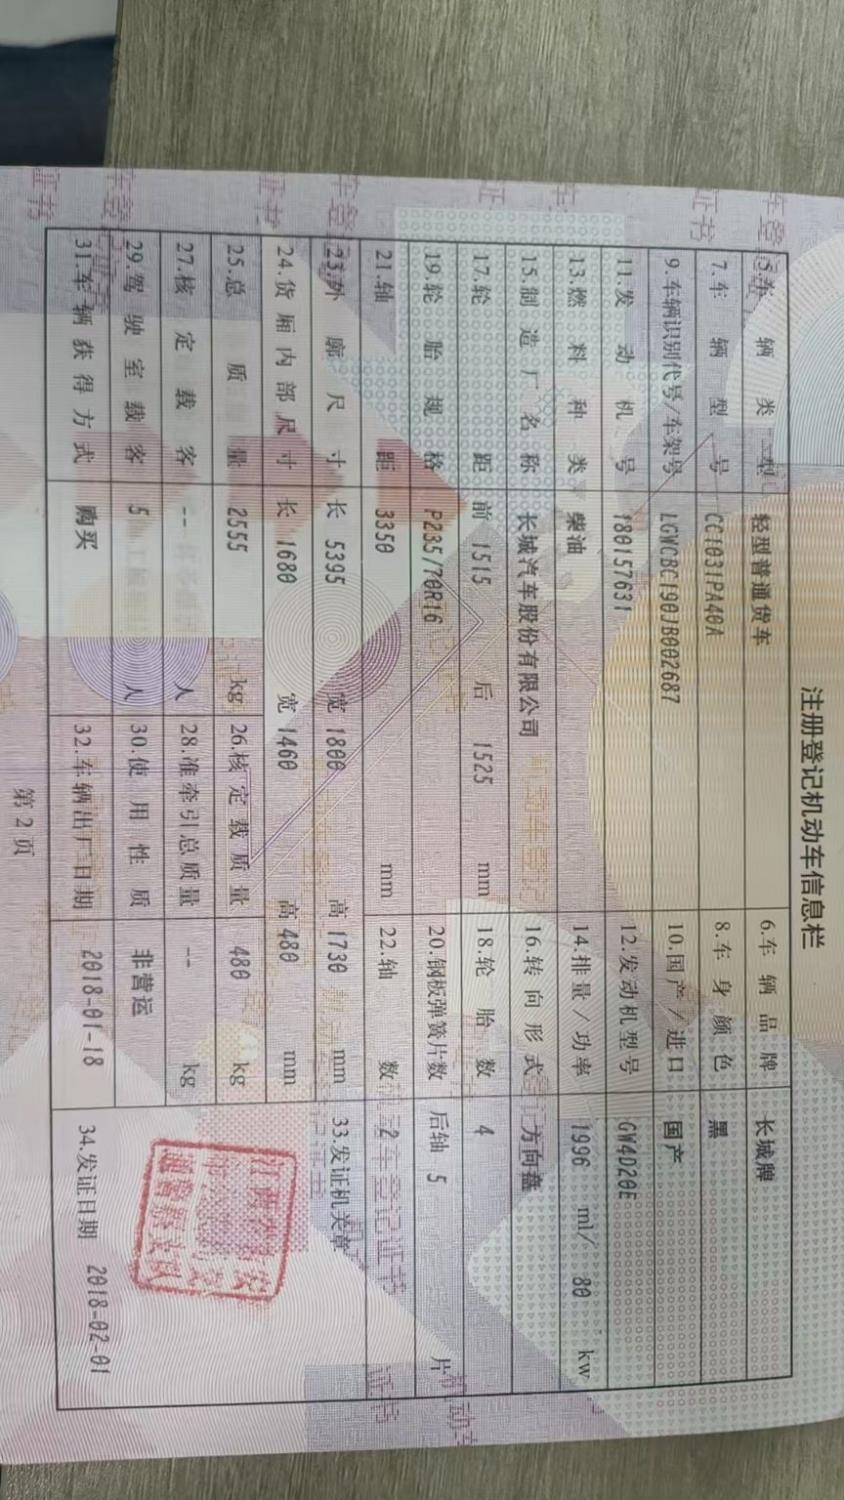 注册登记机动车信息栏
5.车辆类型 轻型普通货车 6.车辆品牌 长城牌
7.车辆型号 CC1031PA40A 8.车身颜色 黑
9.车辆识别代号/车架号 LGWCBC190JB002687 10.国产/进口 国产
11.发动机号 180157631 12.发动机型号 GW4D20E
13.燃料种类 柴油 14.排量/功率 1996 ml/ 80 kw
15.制造厂名称 长城汽车股份有限公司 16.转向形式 方向盘
17.轮距 前 1515 后 1525 mm 18.轮胎数 4
19.轮胎规格 P235/70R16 20.钢板弹簧片数 后轴 5 片
21.轴距 3350 mm 22.轴数 2
23.外廓尺寸 长 5395 宽 1800 高 1730 mm 33.发证机关章
24.货厢内部尺寸 长 1680 宽 1460 高 480 mm
25.总质量 2555 kg 26.核定载质量 480 kg
27.核定载客 -- 人 28.准牵引总质量 -- kg
29.驾驶室载客 5 人 30.使用性质 非营运
31.车辆获得方式 购买 32.车辆出厂日期 2018-01-18 34.发证日期 2018-02-01
第2页